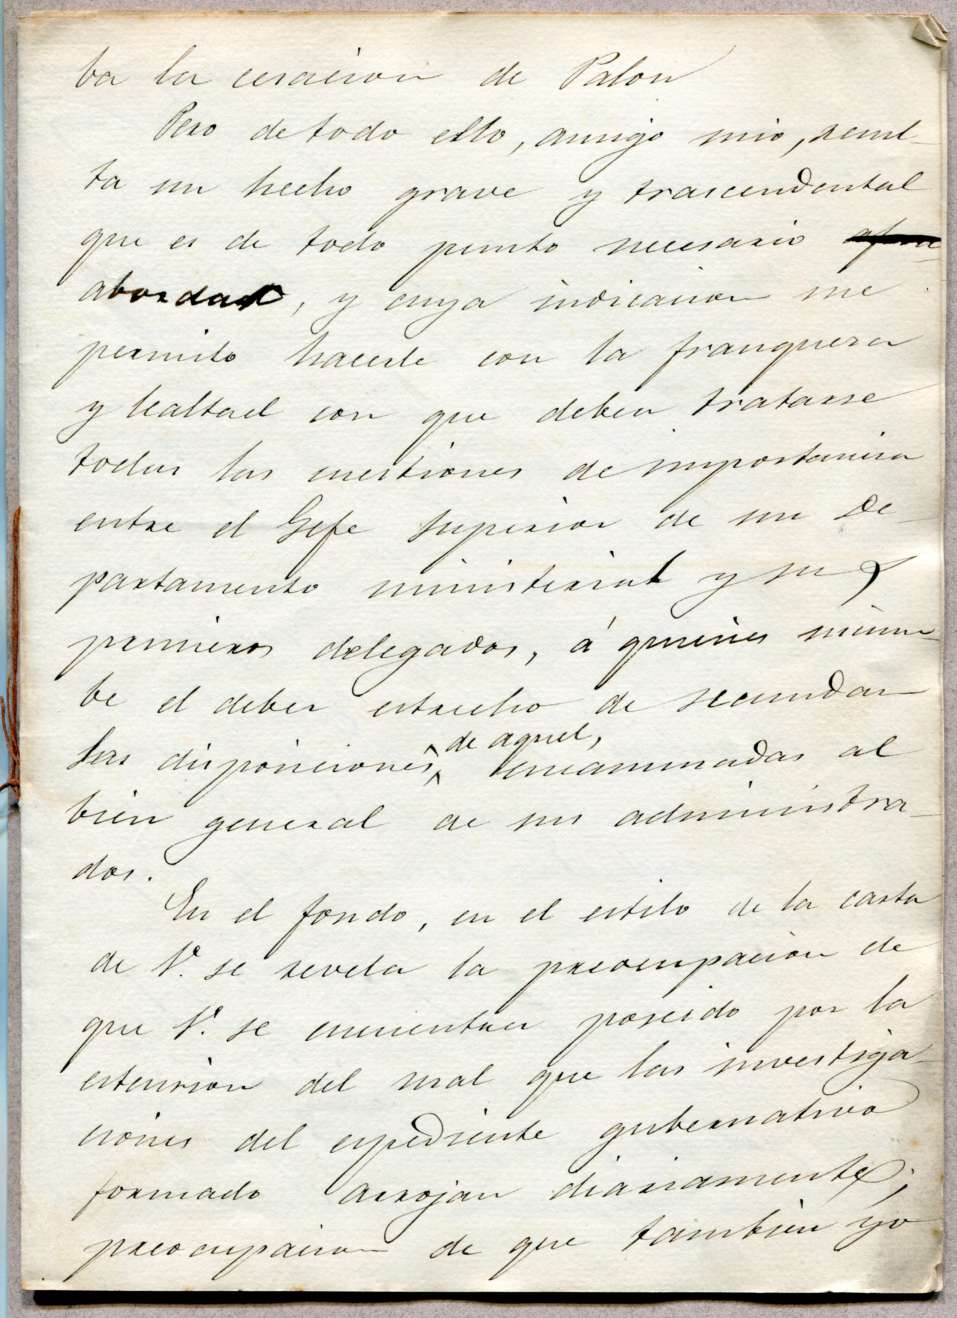 ba la cesacion de Palou
Pero de todo ello, amigo mio, resul-
ta un hecho grave y trascendental
que es de todo punto necesario
abordar, y cuya indicacion me
permito hacerle con la franqueza
y lealtad con que deben tratarse
todas las cuestiones de importancia
entre el Gefe Superior de un De-
partamento ministerial y sus
primeros delegados, á quienes incum-
be el deber estrecho de secundar
las disposiciones de aquel, encaminadas al
bien general de sus administra-
dos.
En el fondo, en el estilo de la carta
de V. se revela la preocupacion de
que V. se encuentra poseido por la
estension del mal que las investiga-
ciones del espediente gubernativo
formado arrojan diariamente;
preocupacion de que tambien yo